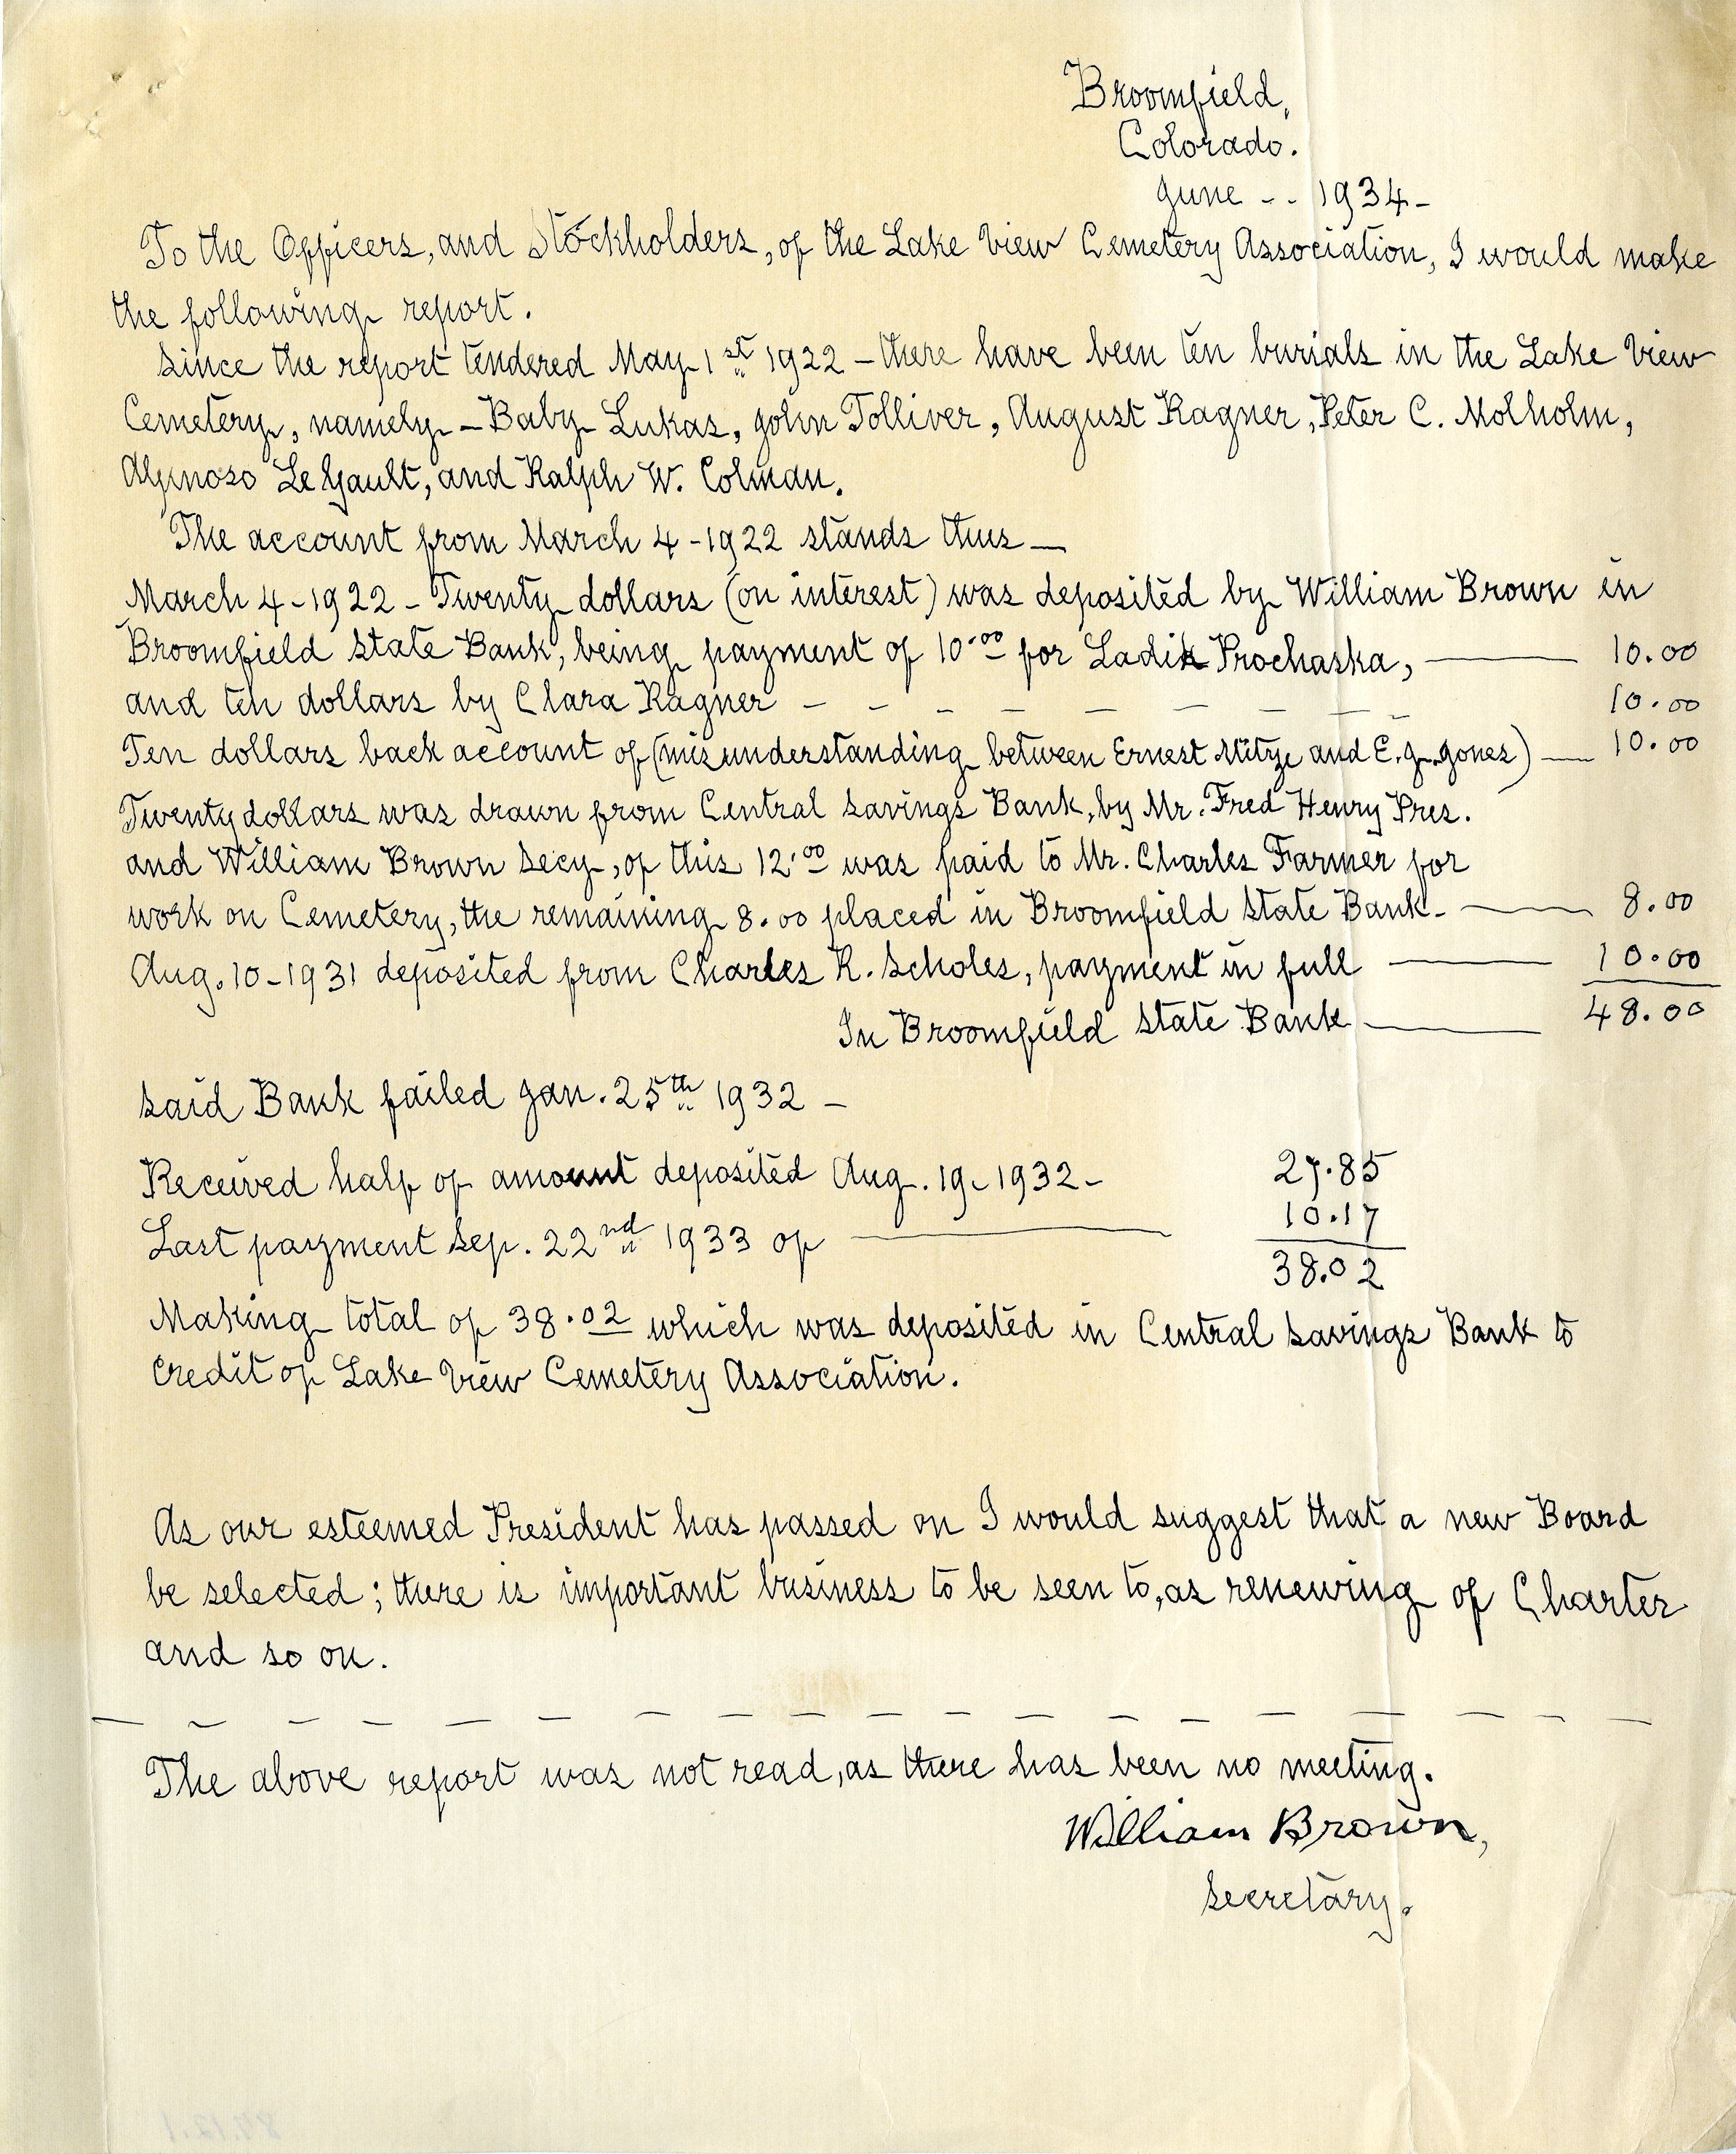 Broomfield,
Colorado.
June - - 1934 -
To the Officers, and Stockholders, of the Lake View Cemetery Association, I would make
the following report.
Since the report tendered May 1st 1922 - there have been ten burials in the Lake View
Cemetery, namely - Baby Lukas, John Tolliver, August Ragner, Peter C. Molholm,
LeGault, and Ralph W. Colman.
The account from March 4 - 1922 stands thus —
March 4 - 1922 - Twenty dollars (on interest) was deposited by William Brown in
Broomfield State Bank, being payment of 10.00 for Ladik Prochaska, — 10.00
and ten dollars by Clara Ragner - - - - - - - - 10.00
Ten dollars back account of (misunderstanding between Ernest Mitze and E. J. Jones) — 10.00
Twenty dollars was drawn from Central Savings Bank, by Mr. Fred Henry Pres.
and William Brown Secy, of this 12.00 was paid to Mr. Charles Farmer for
work on Cemetery, the remaining 8.00 placed in Broomfield State Bank. — 8.00
Aug. 10 - 1931 deposited from Charles R. Scholes, payment in full — 10.00
In Broomfield State Bank — 48.00
Said Bank failed Jan. 25th 1932 -
Received half of amount deposited Aug. 19 - 1932 - 27.85
Last payment Sep. 22nd 1933 of — 10.17
38.02
Making total of 38.02 which was deposited in Central Savings Bank to
Credit of Lake View Cemetery Association.
As our esteemed President has passed on I would suggest that a new Board
be selected; there is important business to be seen to, as renewing of Charter
and so on.
The above report was not read, as there has been no meeting.
William Brown,
Secretary.